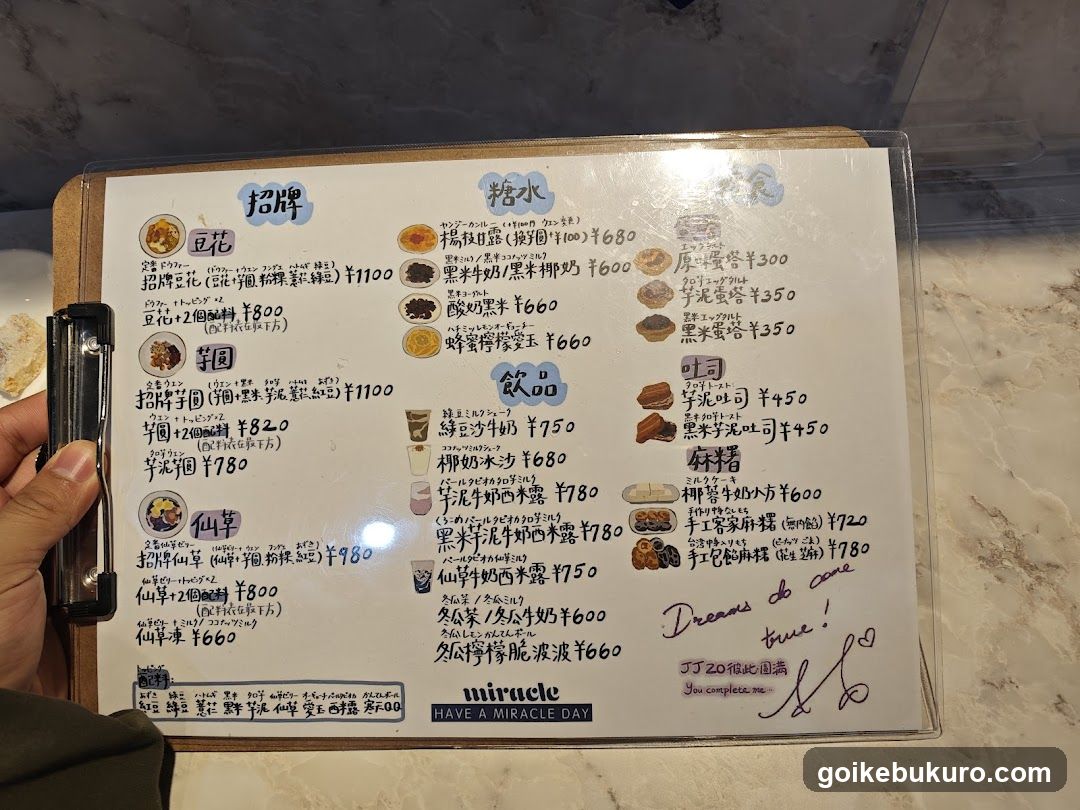 招牌
豆花
定番ドウファー (ドウファー+ウエン フングェ ハトムギ 緑豆)
招牌豆花 (豆花+芋圓.粉粿.薏仁.綠豆) ¥1100
ドウファー+トッピング×2
豆花+2個配料 ¥800
(配料表在最下方)
芋圓
定番ウエン (ウエン+黒米 タロ芋 ハトムギ あずき)
招牌芋圓 (芋圓+黑米.芋泥.薏仁.紅豆) ¥1100
ウエン+トッピング×2
芋圓+2個配料 ¥820
(配料表在最下方)
タロ芋ウエン
芋泥芋圓 ¥780
仙草
定番仙草ゼリー (仙草ゼリー+ウエン フングェ あずき)
招牌仙草 (仙草+芋圓.粉粿.紅豆) ¥980
仙草ゼリー+トッピング×2
仙草+2個配料 ¥800
(配料表在最下方)
仙草ゼリー+ミルク/ココナッツミルク
仙草凍 ¥660
トッピング
配料:
あずき 緑豆 ハトムギ 黒米 タロ芋 仙草ゼリー オーギョーチ パールタピオカ かんてんボール
紅豆 綠豆 薏仁 黑米 芋泥 仙草 愛玉 西米露 寒天QQ
糖水
ヤンジーカンルー (+¥100円 ウエン変更)
楊枝甘露 (換芋圓+¥100) ¥680
黒米ミルク/黒米ココナッツミルク
黑米牛奶/黑米椰奶 ¥600
黒米ヨーグルト
酸奶黑米 ¥660
ハチミツレモンオーギョーチー
蜂蜜檸檬愛玉 ¥660
飲品
緑豆ミルクシェーク
綠豆沙牛奶 ¥750
ココナッツミルクシェーク
椰奶冰沙 ¥680
パールタピオカタロ芋ミルク
芋泥牛奶西米露 ¥780
(くろごめ)パールタピオカタロ芋ミルク
黑米芋泥牛奶西米露 ¥780
パールタピオカ仙草ミルク
仙草牛奶西米露 ¥750
冬瓜茶/冬瓜ミルク
冬瓜茶/冬瓜牛奶 ¥600
冬瓜レモンかんてんボール
冬瓜檸檬脆波波 ¥660
miracle
HAVE A MIRACLE DAY
食
エッグタルト
原味蛋塔 ¥300
タロ芋エッグタルト
芋泥蛋塔 ¥350
黒米エッグタルト
黑米蛋塔 ¥350
吐司
タロ芋トースト
芋泥吐司 ¥450
黒米タロ芋トースト
黑米芋泥吐司 ¥450
麻糬
ミルクケーキ
椰蓉牛奶小方 ¥600
手作り中身なしもち
手工客家麻糬 (無內餡) ¥720
台湾中身入りもち (ピーナッツ ごま)
手工包餡麻糬 (花生 芝麻) ¥780
Dreams do come
true!
JJ20彼此圓滿
You complete me...
goikebukuro.com